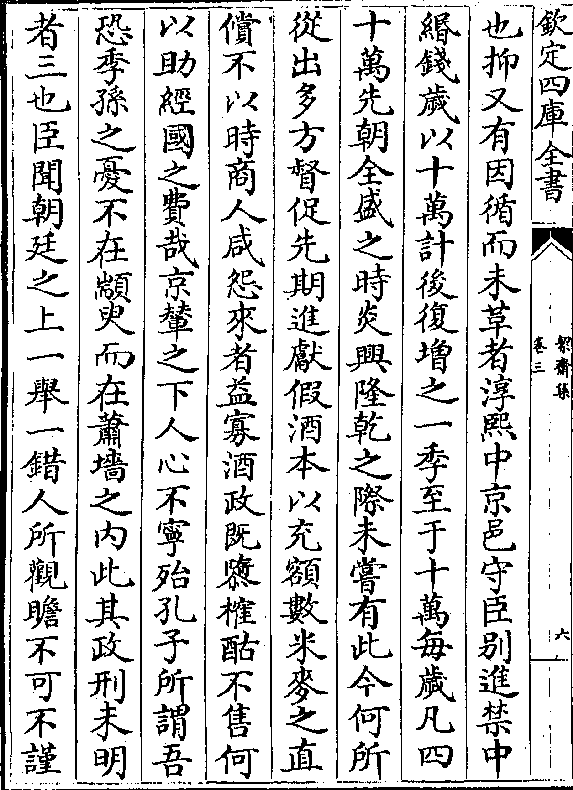 欽定四庫全書
絜齋集
卷三
六
也抑又有因循而未革者淳熙中京邑守臣别進禁中
緡錢歲以十萬計後復增之一季至于十萬每歲凡四
十萬先朝全盛之時炎興隆乾之際未嘗有此今何所
從出多方督促先期進獻假酒本以充額數米麥之直
償不以時商人咸怨來者益寡酒政既隳榷酤不售何
以助經國之費哉京輦之下人心不寧殆孔子所謂吾
恐季孫之憂不在顓臾而在蕭墻之内此其政刑未明
者三也臣聞朝廷之上一舉一錯人所觀瞻不可不謹